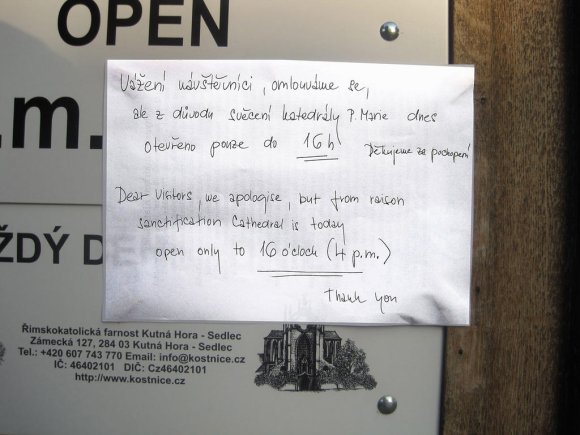 OPEN
.m.
Vážení návštěvníci, omlouváme se,
ale z důvodu svěcení katedrály P. Marie dnes
otevřeno pouze do 16 h
Děkujeme za pochopení
Dear Visitors, we apologise, but from raison
sanctification Cathedral is today
open only to 16 o'cloch (4 p.m.)
Thank you
ŽDÝ DE
Římskokatolická farnost Kutná Hora - Sedlec
Zámecká 127, 284 03 Kutná Hora - Sedlec
Tel.: +420 607 743 770 Email: info@kostnice.cz
IČ: 46402101 DIČ: Cz46402101
http://www.kostnice.cz